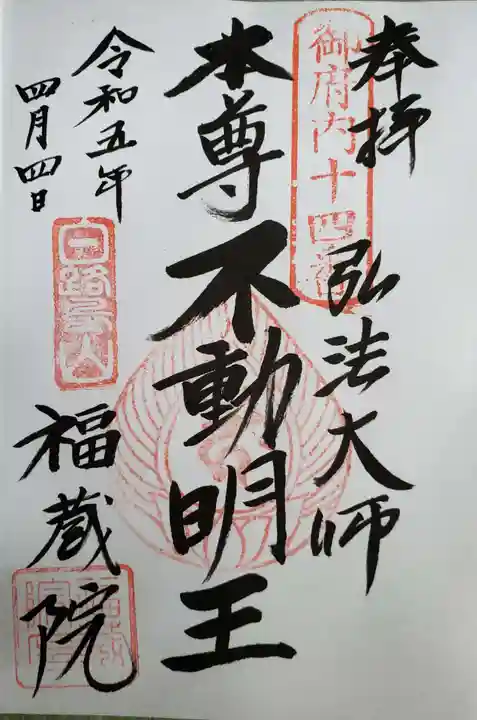 奉拝
御府内十四番
弘法大師
本尊不動明王
令和五年
四月四日
福蔵院